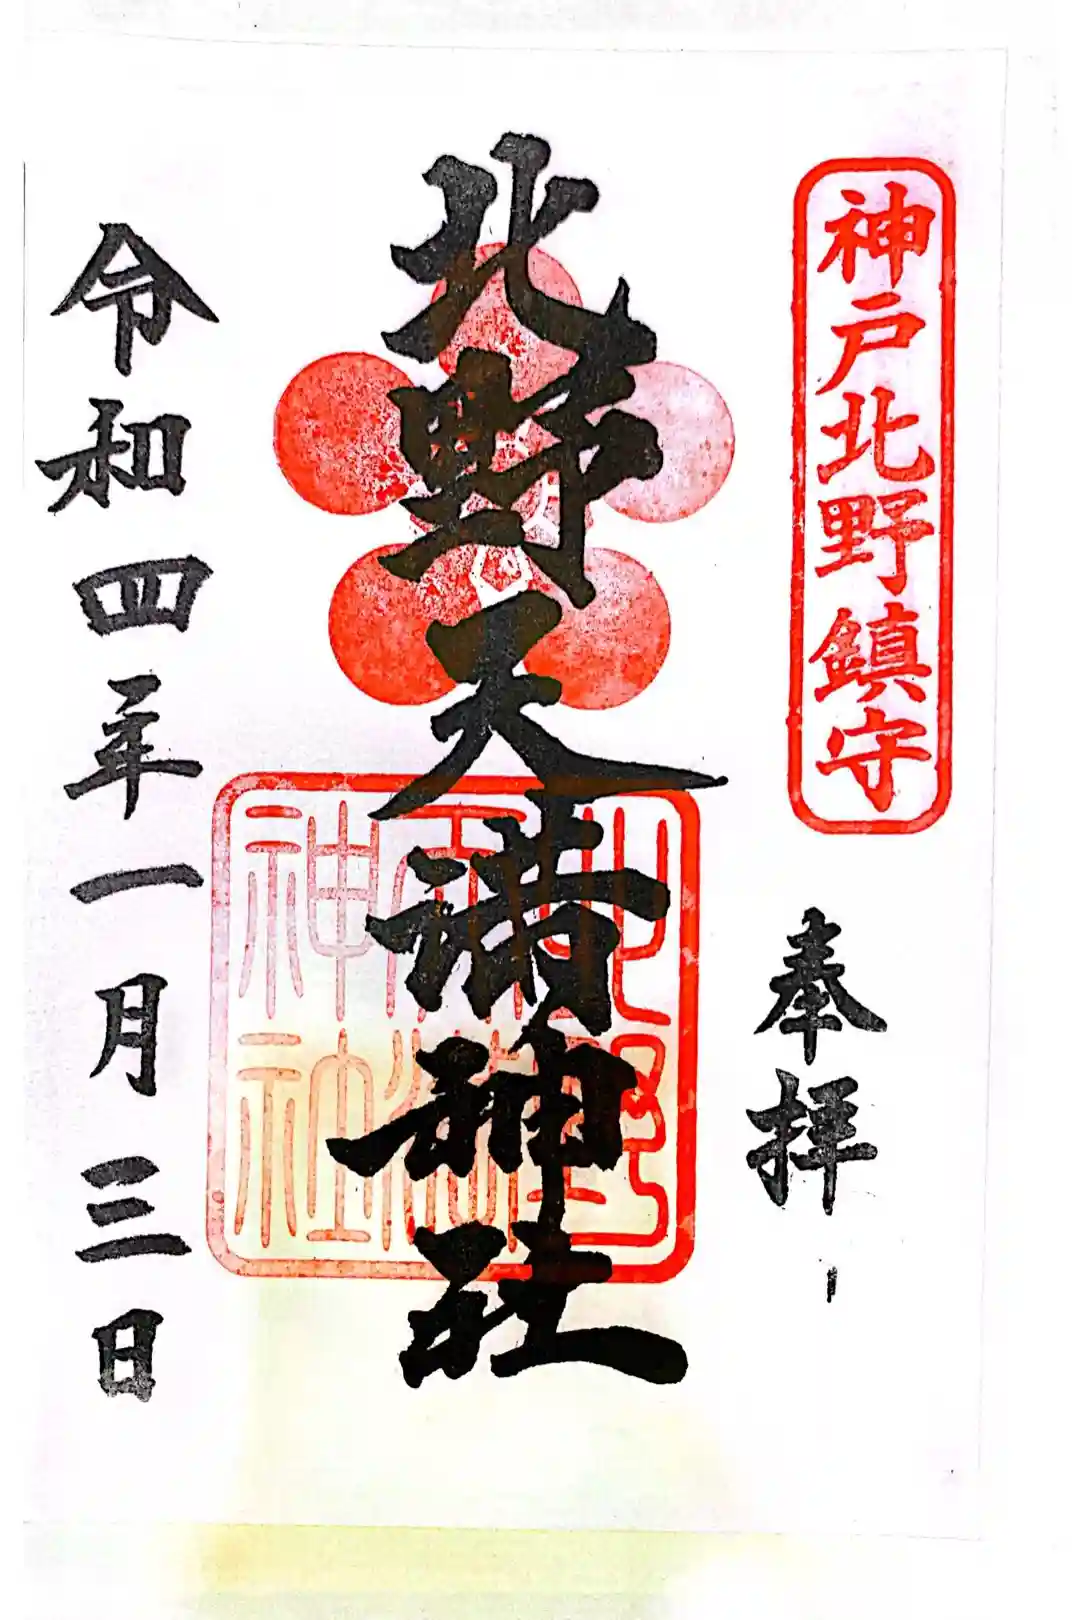 神戸北野鎮守
奉拝
北野天満神社
北野
天満
神社
令和四年一月三日